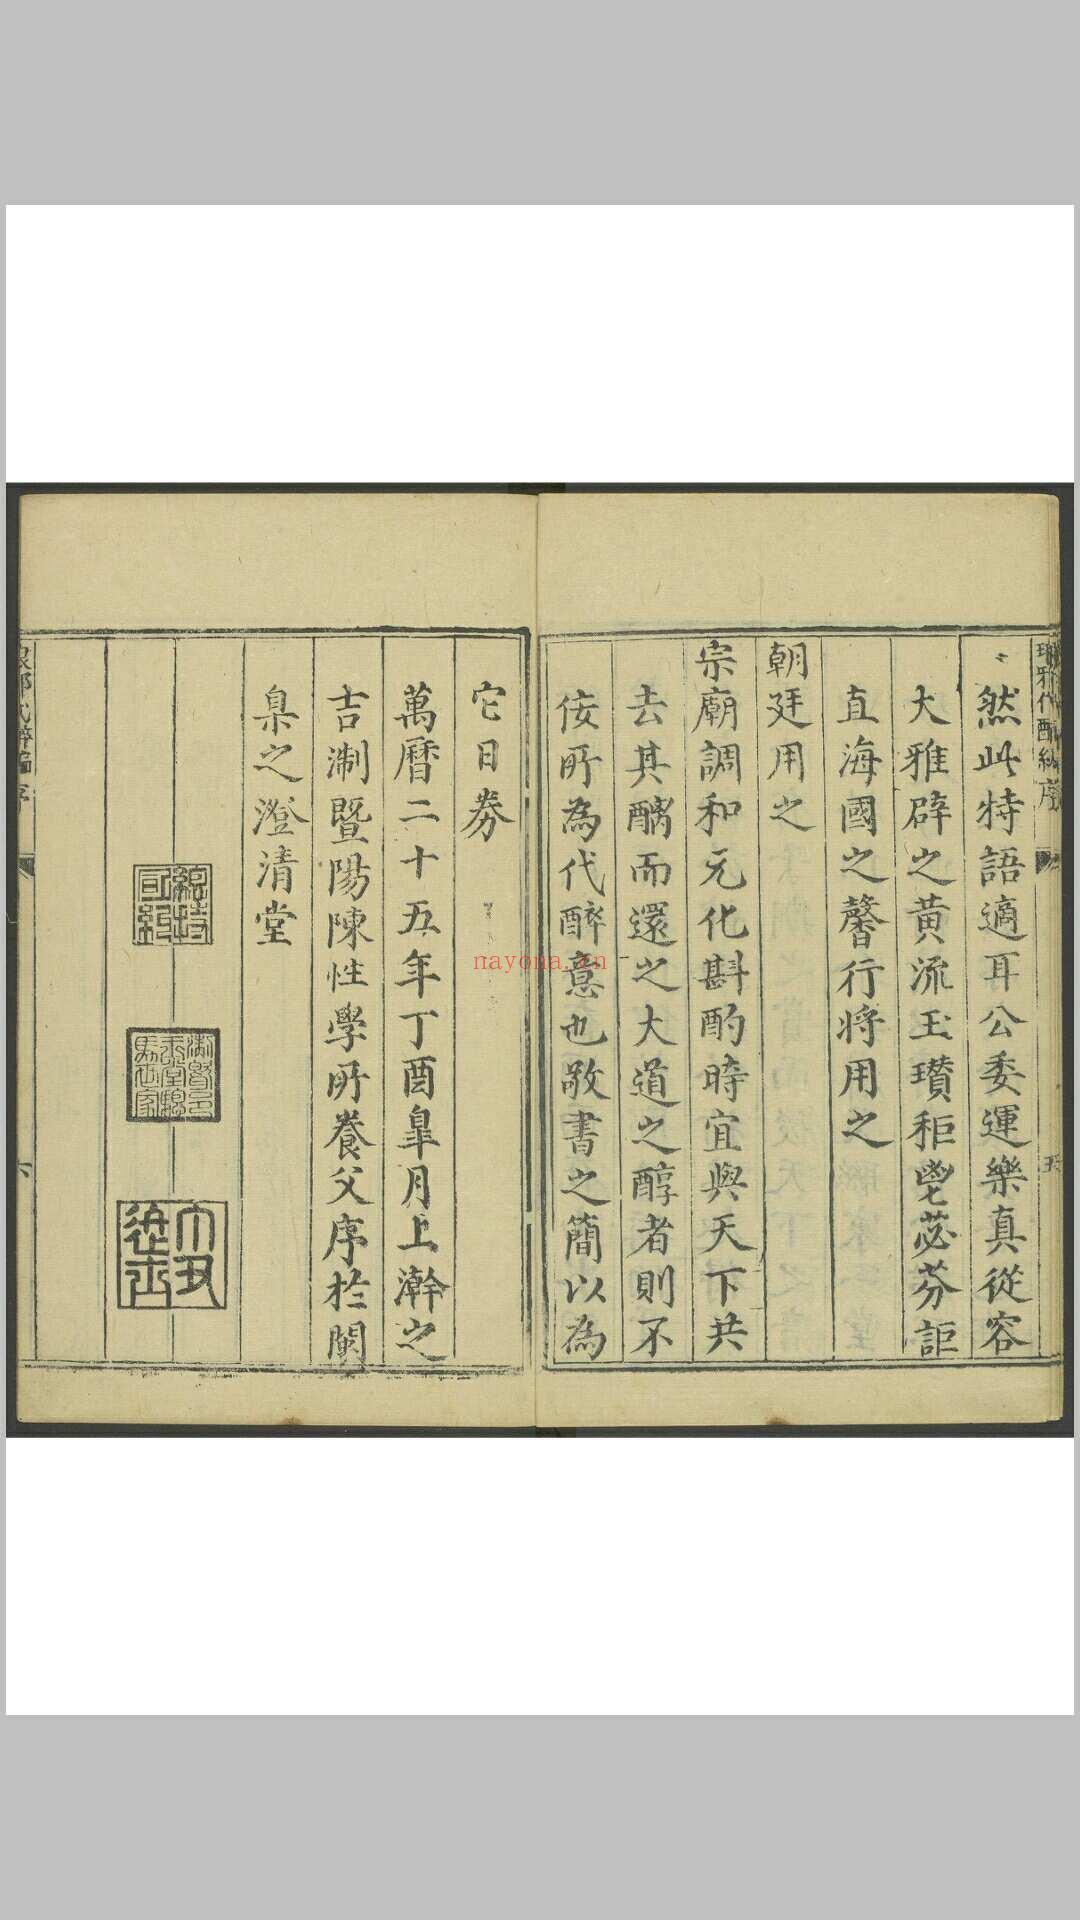 然此特語適耳公委運樂真從容
大雅辟之黃流玉瓚秬鬯苾芬詎
直海國之馨行將用之
朝廷用之
宗廟調和元化斟酌時宜與天下共
去其醨而還之大道之醇者則不
佞所為代醉意也敬書之簡以為
它日券
萬曆二十五年丁酉皐月上澣之
吉淛暨陽陳性學所養父序於閩
臬之澄清堂
六
nayona.cn